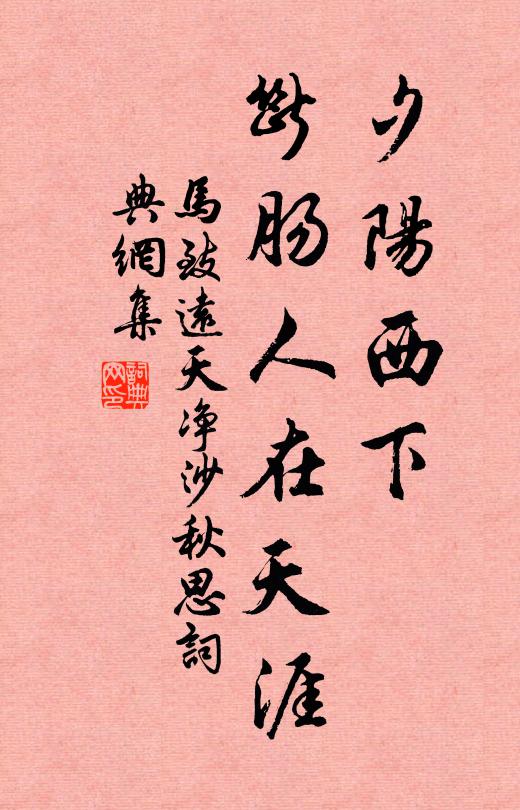 夕陽西下
斷腸人在天涯
馬致遠天净沙秋思詞
典網集
詞典网印